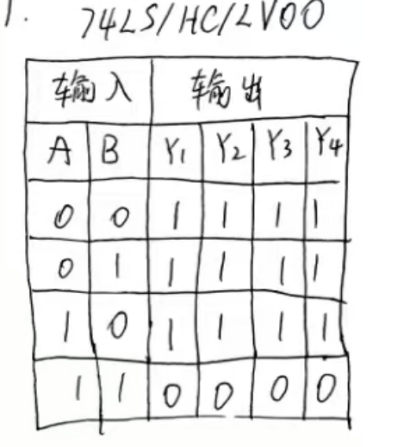 1. 74LS/HC/LV00
输入 输出
A B Y₁ Y₂ Y₃ Y₄
0 0 1 1 1 1
0 1 1 1 1 1
1 0 1 1 1 1
1 1 0 0 0 0